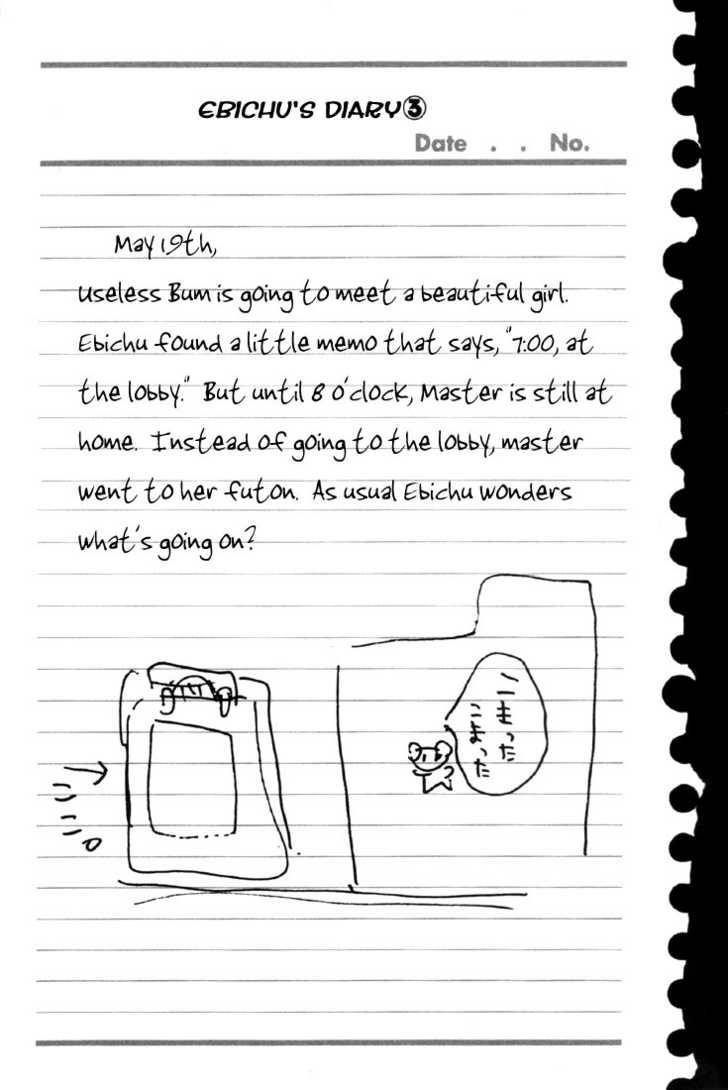 EBICHU'S DIARY③
Date . . No.
May 19th,
Useless Bum is going to meet a beautiful girl.
Ebichu found a little memo that says, "7:00, at
the lobby." But until 8 o'clock, Master is still at
home. Instead of going to the lobby, master
went to her futon. As usual Ebichu wonders
what's going on?